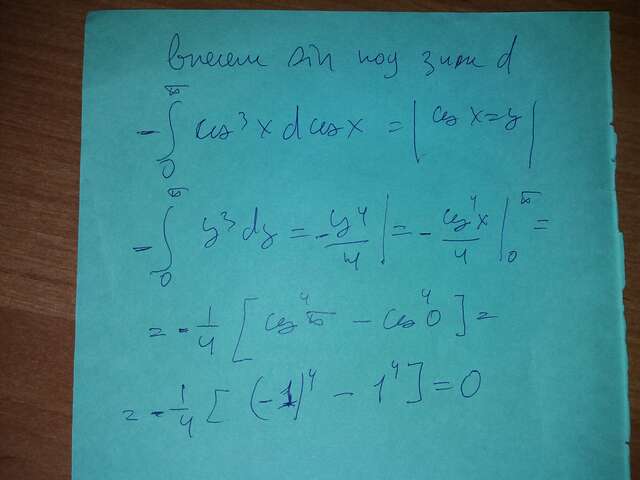 внесем sin под знак d
-∫₀^π cos³x dcosx = | cosx=y |
-∫₀^π y³dy = -y⁴/4 | = -cos⁴x/4 |₀^π =
= -1/4 [cos⁴π - cos⁴0] =
= -1/4 [(-1)⁴ - 1⁴] = 0